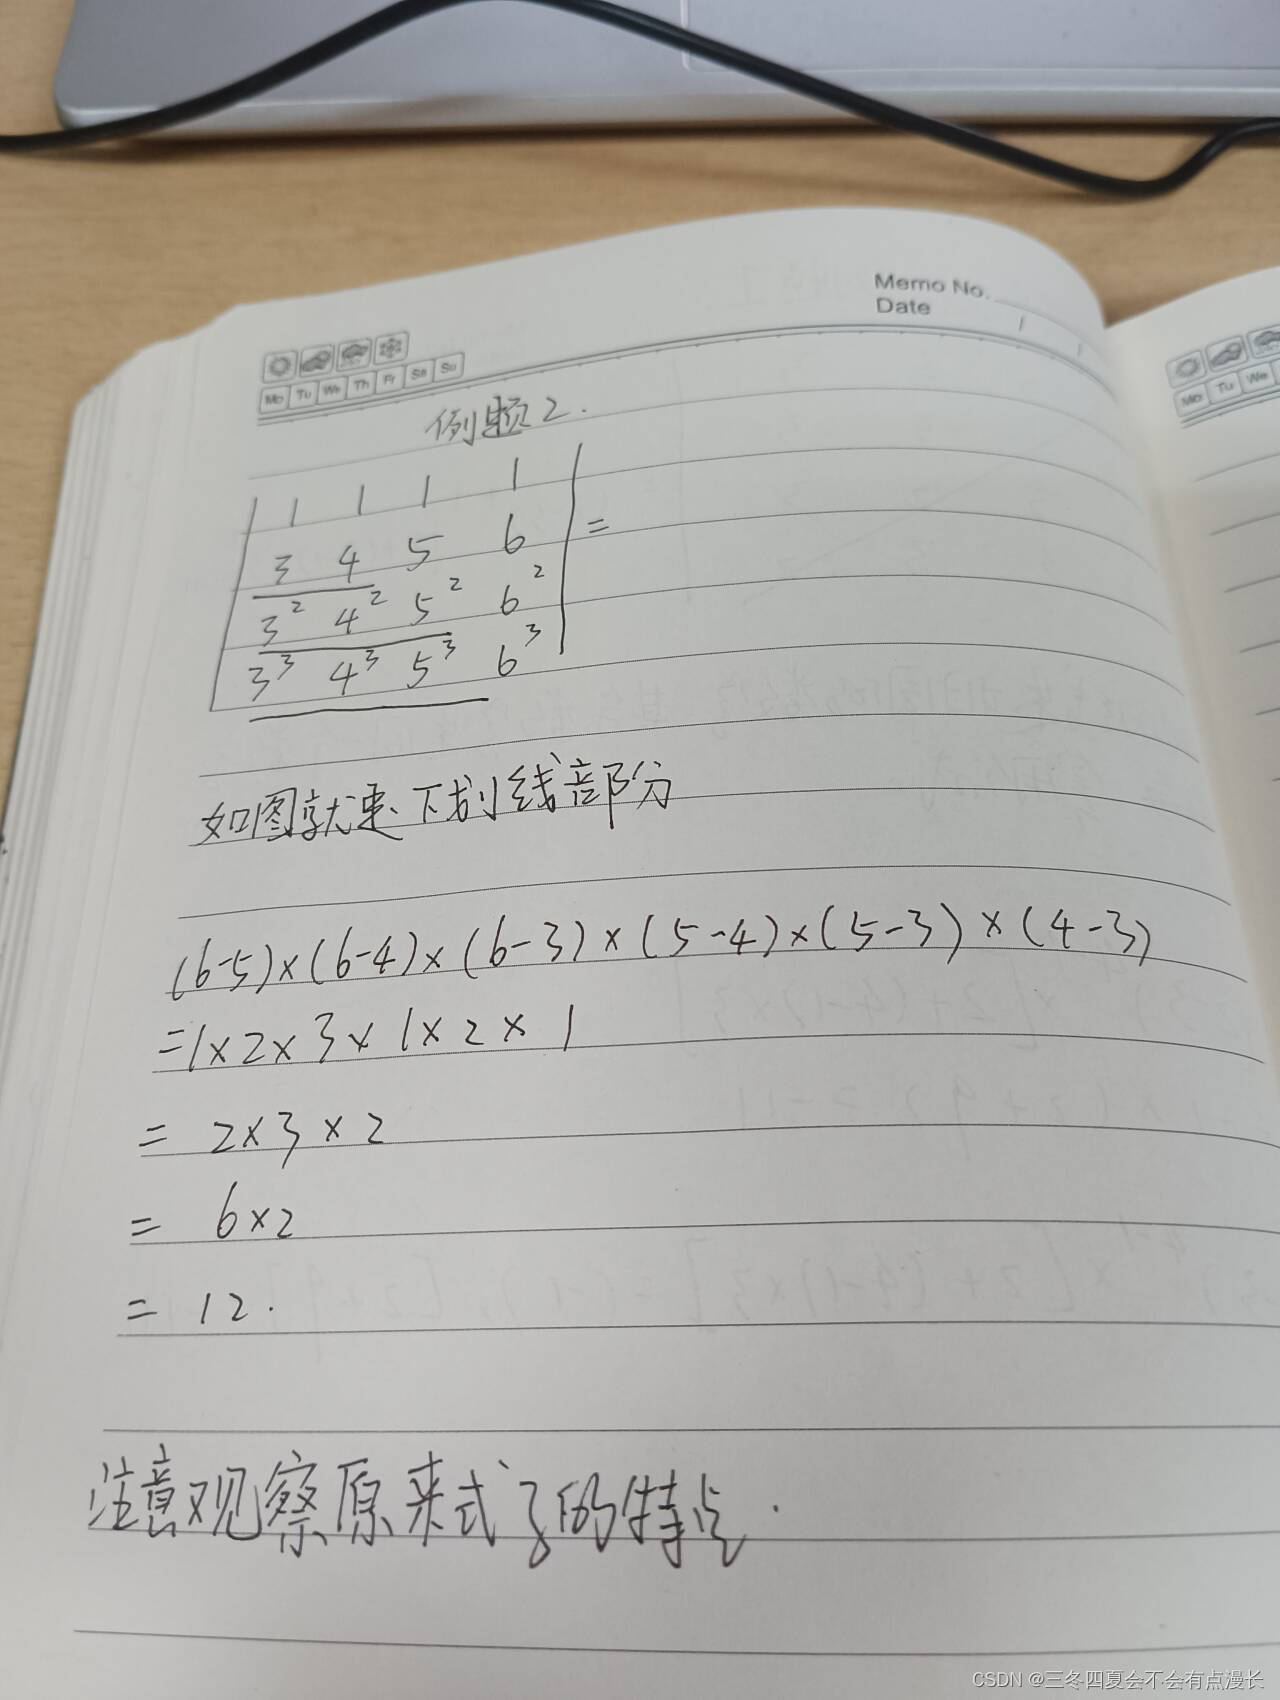 Memo No.
Date
Mo Tu We Th Fr Sa Su
Mo Tu We
例题2.
1 1 1 1
3 4 5 6 =
3² 4² 5² 6²
3³ 4³ 5³ 6³
如图就是下划线部分
(6-5)×(6-4)×(6-3)×(5-4)×(5-3)×(4-3)
=1×2×3×1×2×1
= 2×3×2
= 6×2
= 12.
注意观察原来式子的特点.
CSDN @三冬四夏会不会有点漫长